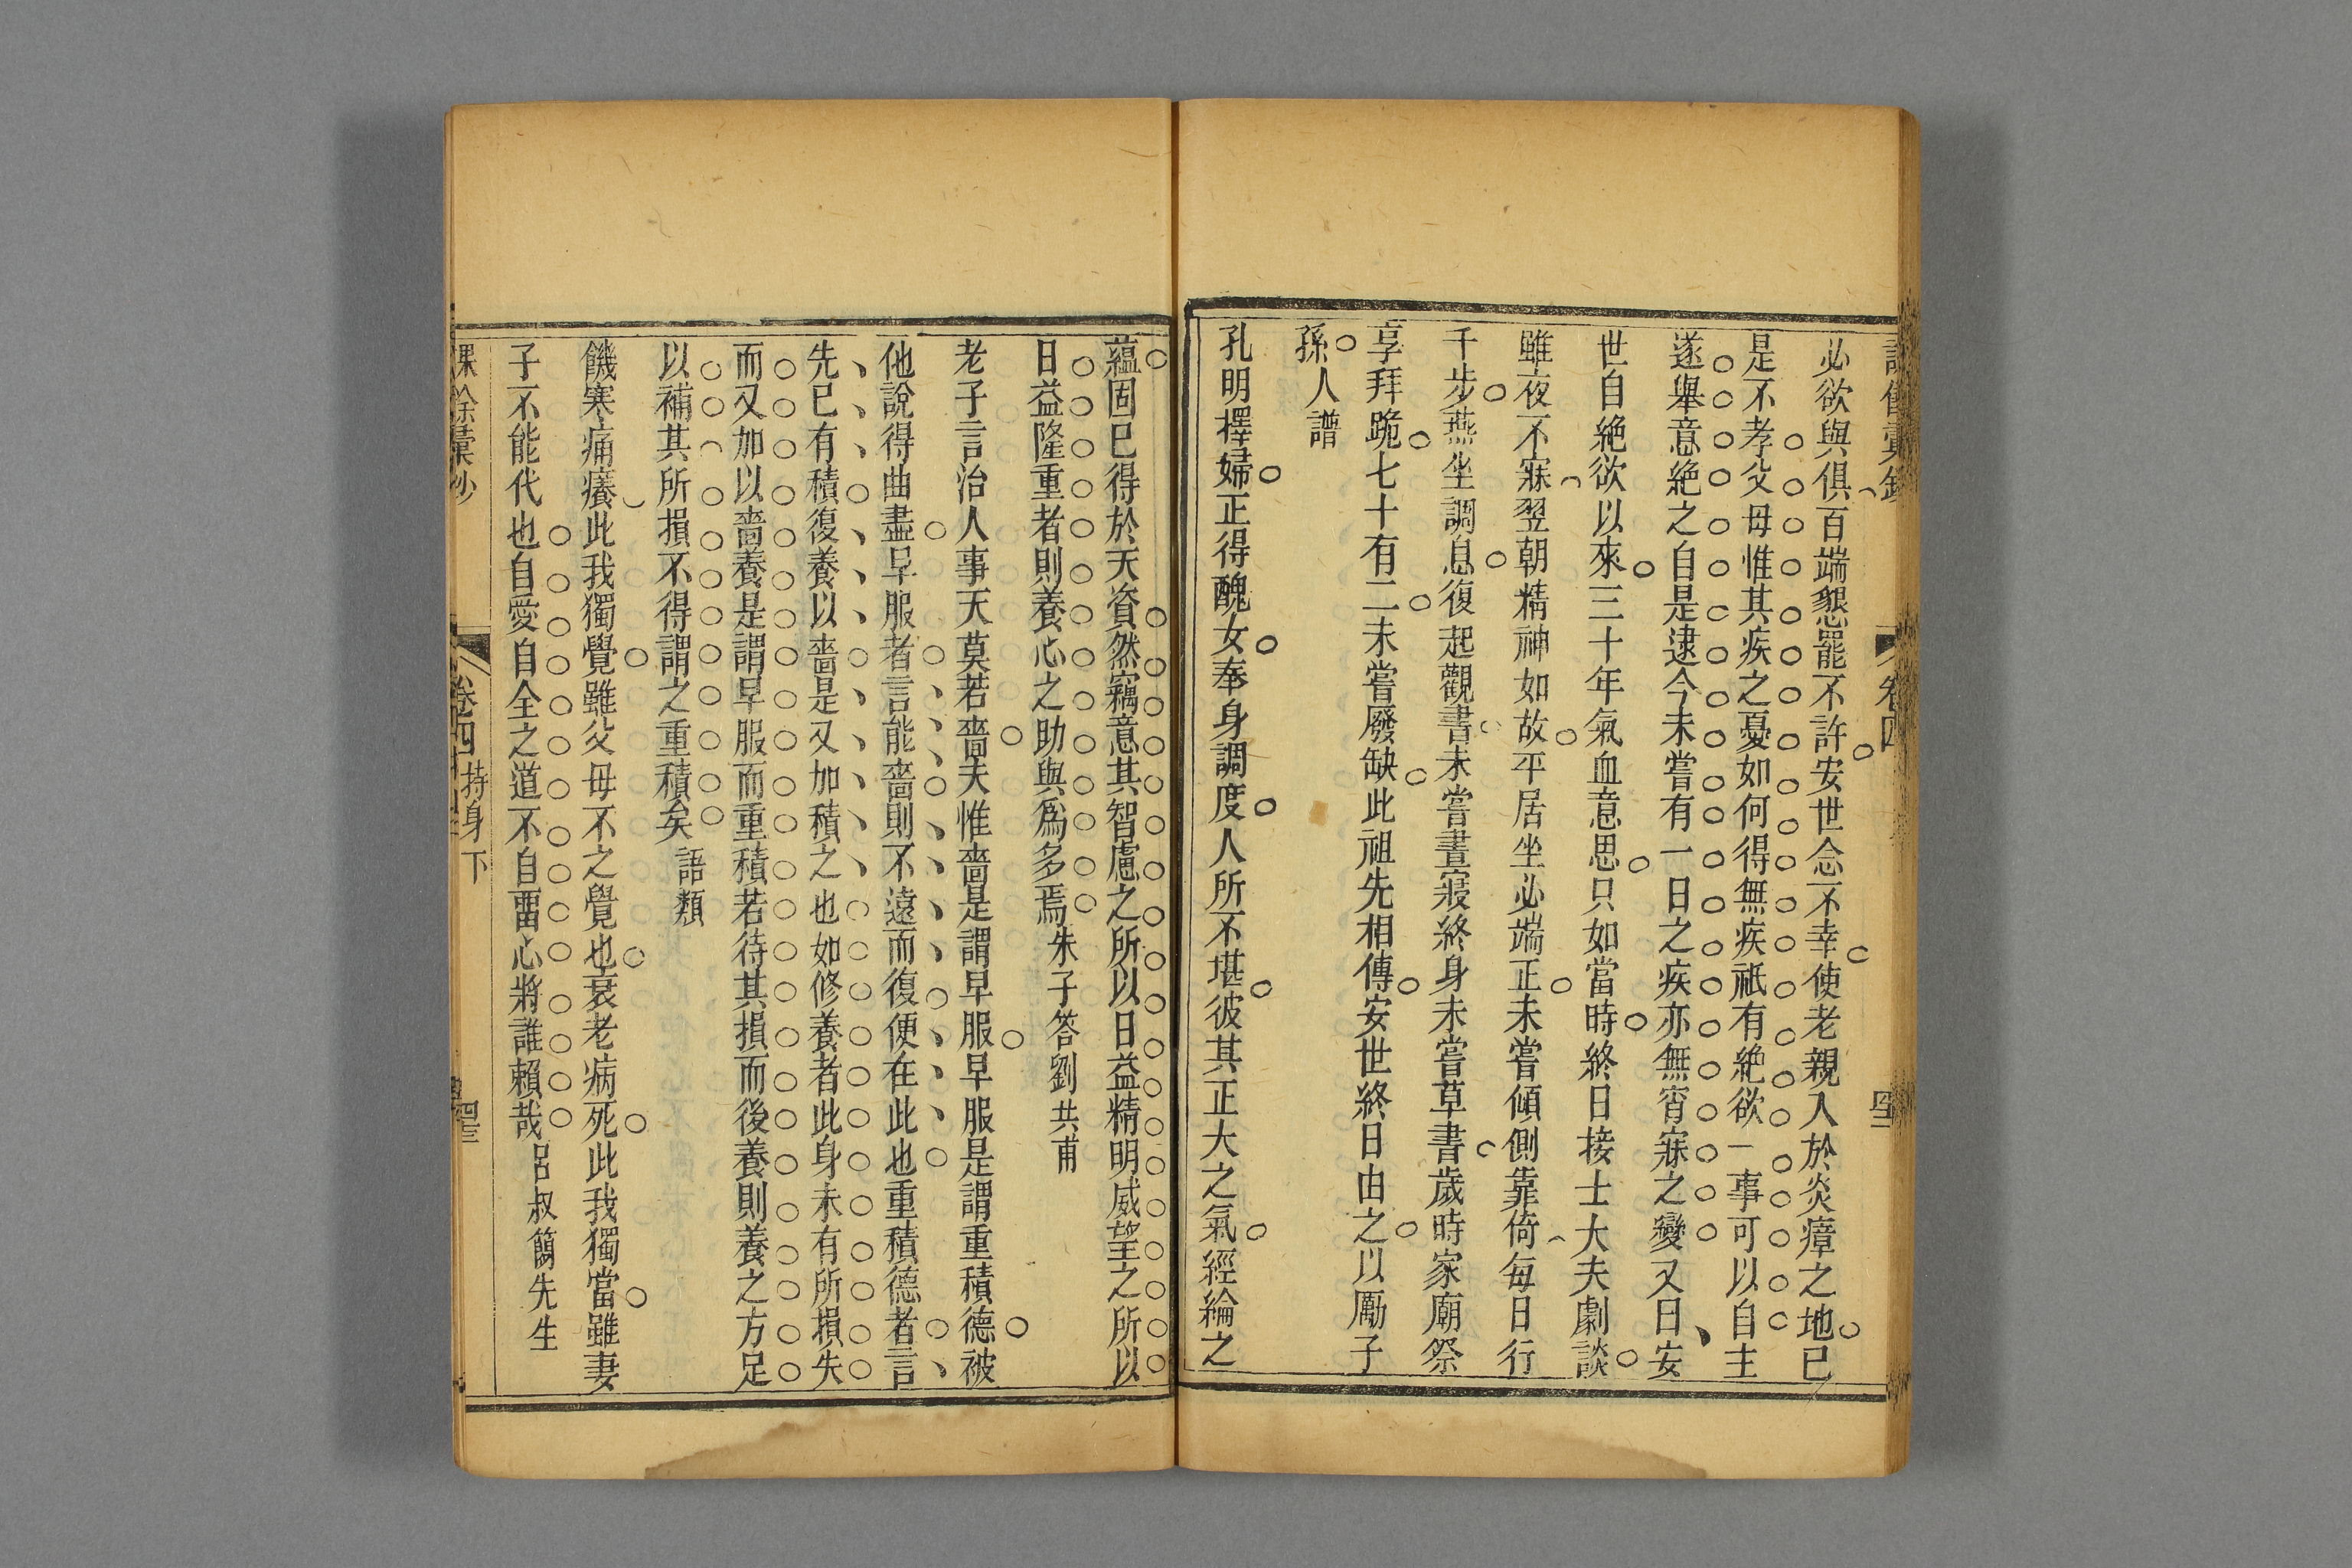 卷四
必欲與俱百端懇罷不許安世念不幸使老親入於炎瘴之地已
是不孝父母惟其疾之憂如何得無疾祇有絶欲一事可以自主
遂舉意絶之自是逮今未嘗有一日之疾亦無宵寐之變又曰安
世自絶欲以來三十年氣血意思只如當時終日接士大夫劇談
雖夜不寐翌朝精神如故平居坐必端正未嘗傾側靠倚每日行
千步燕坐調息復起觀書未嘗晝寢終身未嘗草書歲時家廟祭
享拜跪七十有二未嘗廢缺此祖先相傳安世終日由之以勵子
孫人譜
孔明擇婦正得醜女奉身調度人所不堪彼其正大之氣經綸之
蘊固已得於天資然竊意其智慮之所以日益精明威望之所以
日益隆重者則養心之助與爲多焉朱子答劉共甫
老子言治人事天莫若嗇夫惟嗇是謂早服早服是謂重積德被
他說得曲盡早服者言能嗇則不遠而復便在此也重積德者言
先已有積復養以嗇是又加積之也如修養者此身未有所損失
而又加以嗇養是謂早服而重積若待其損而後養則養之方足
以補其所損不得謂之重積矣語類
饑寒痛癢此我獨覺雖父母不之覺也衰老病死此我獨當雖妻
子不能代也自愛自全之道不自畱心將誰賴哉呂叔簡先生
課餘彙鈔
卷四
持身下